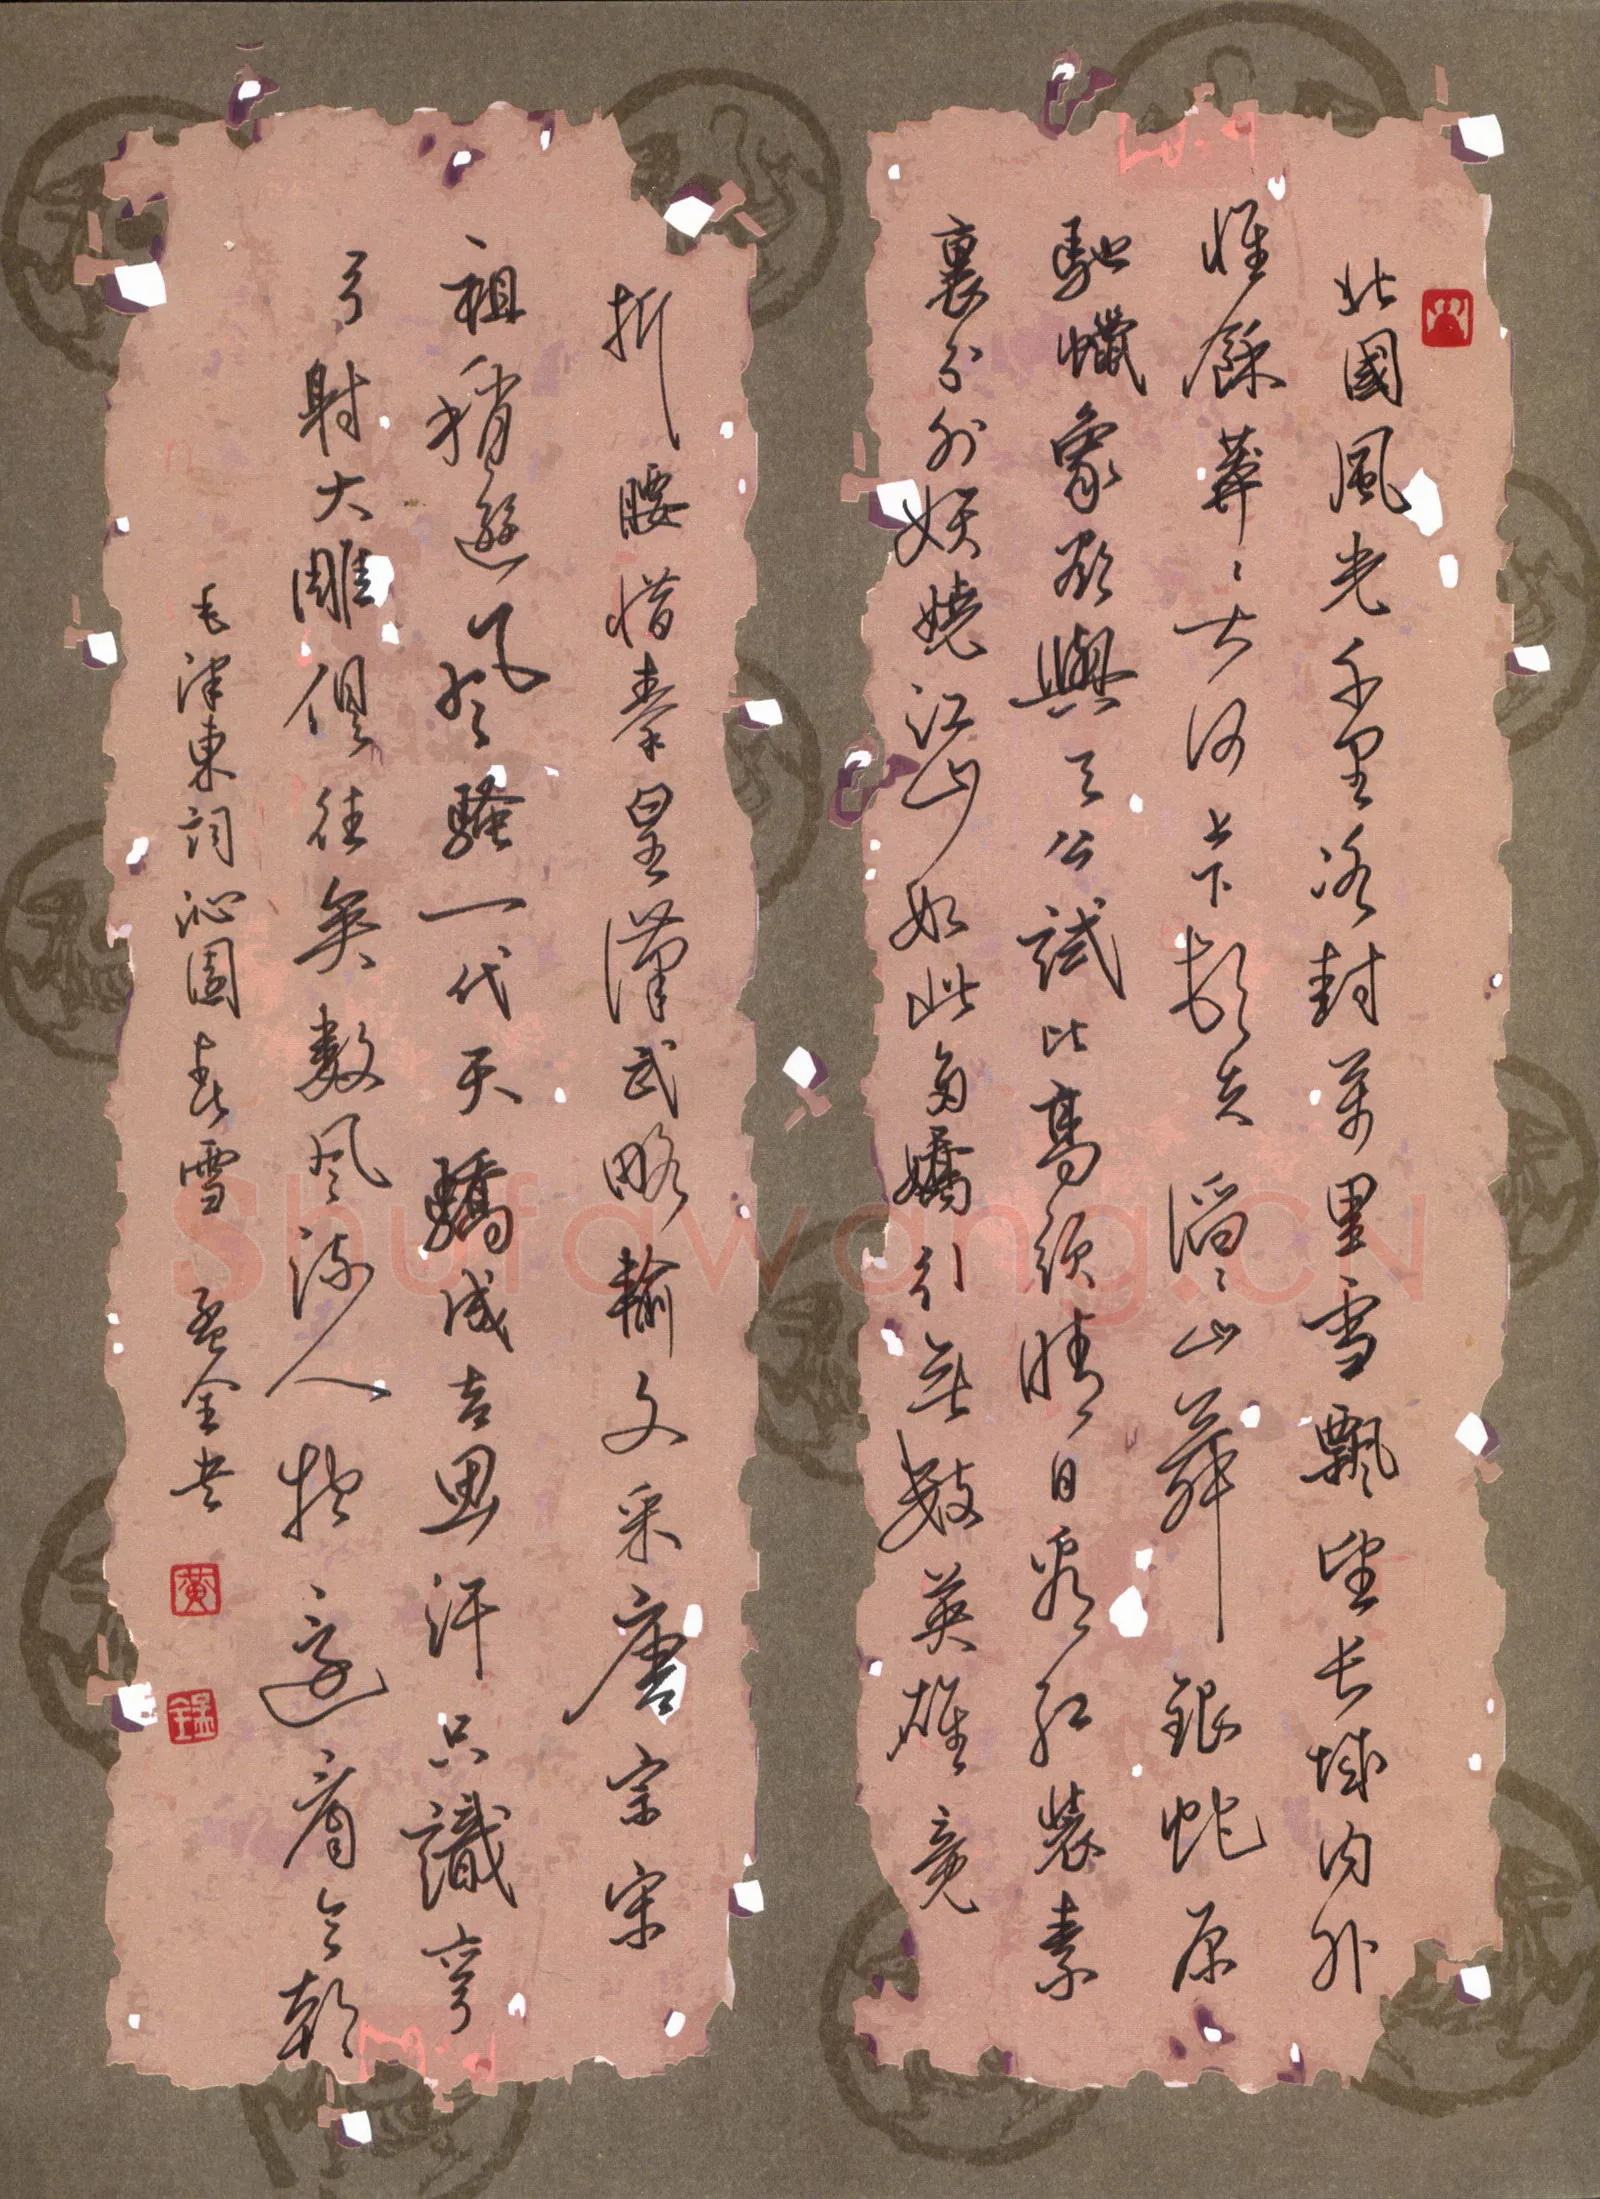 北國風光千里冰封萬里雪飄望長城内外
惟餘莽〻大河上下頓失滔〻山舞銀蛇原
馳蠟象欲與天公試比高須晴日看紅裝素
裹分外妖嬈江山如此多嬌引無數英雄競
折腰惜秦皇漢武略輸文采唐宗宋
祖稍遜风騷一代天驕成吉思汗只識弯
弓射大雕俱往矣數风流人物還看今朝
毛澤東詞沁園春雪 孟金书
黄
Shufawang.CN